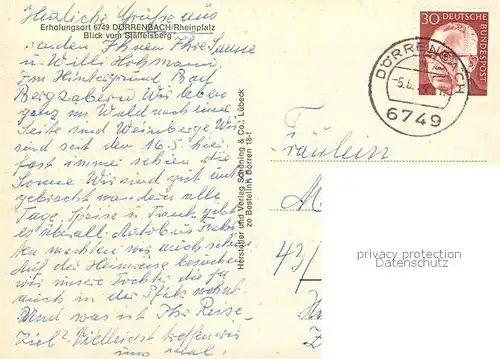 Herzliche Grüße aus
Erholungsort 6749 DÖRRENBACH/Rheinpfalz
Blick vom Staffelsberg
senden Ihnen Ihre
u. Willi
Im Hintergrund Bad
Bergzabern. Wir leben
ganz im Wald nach einer
Seite sind Weinberge. Wir
sind seit dem 16.5. hier
fast immer schien die
Sonne. Wir sind gut unter
gebracht wandern alle
Tage, Speise u. Trank gibt
es überall. Autobus fahr
ten machten wir auch schon.
Auf der Heimreise besuchen
wir unsere Tochter die ja
auch in der Pfalz wohnt.
Und was ist Ihr Reise-
Ziel? Vielleicht treffen wir
uns mal.
Hersteller und Verlag Schöning & Co., Lübeck
ze Bestellnr. Dörren 18-f
30 DEUTSCHE BUNDESPOST
DÖRRENBACH
-5.6.
6749
Fräulein
M
43/
privacy protection
Datenschutz